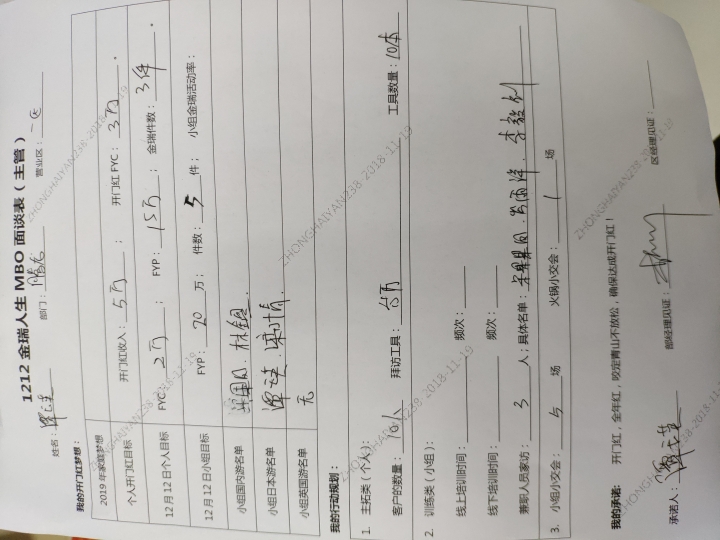 1212 金瑞人生 MBO 面谈表（主管）
姓名： 部门： 营业区：
我的开门红梦想：
2019 年家庭梦想
个人开门红目标 开门红收入：5万； 开门红 FYC：3万.
12 月 12 日个人目标 FYC：2万； FYP：15万； 金瑞件数：3件
12 月 12 日小组目标 FYP：20万； 件数：5件； 小组金瑞活动率：
小组国内游名单
小组日本游名单
小组英国游名单 无
我的行动规划：
1. 主拓类（个人）：
客户的数量：10人 拜访工具： 工具数量：10本
2. 训练类（小组）：
线上培训时间： 频次：
线下培训时间： 频次：
兼职人员家访：3人；具体名单：
3. 小组小交会：5场 火锅小交会：1场
我的承诺： 开门红，全年红，咬定青山不放松，确保达成开门红！
承诺人： 部经理见证： 区经理见证：
ZHONGHAIYAN238-2018-11-19
ZHONGHAIYAN238-2018-11-19
ZHONGHAIYAN238-2018-11-19
ZHONGHAIYAN238-2018-11-19
ZHONGHAIYAN238-2018-11-19
ZHONGHAIYAN238-2018-11-19